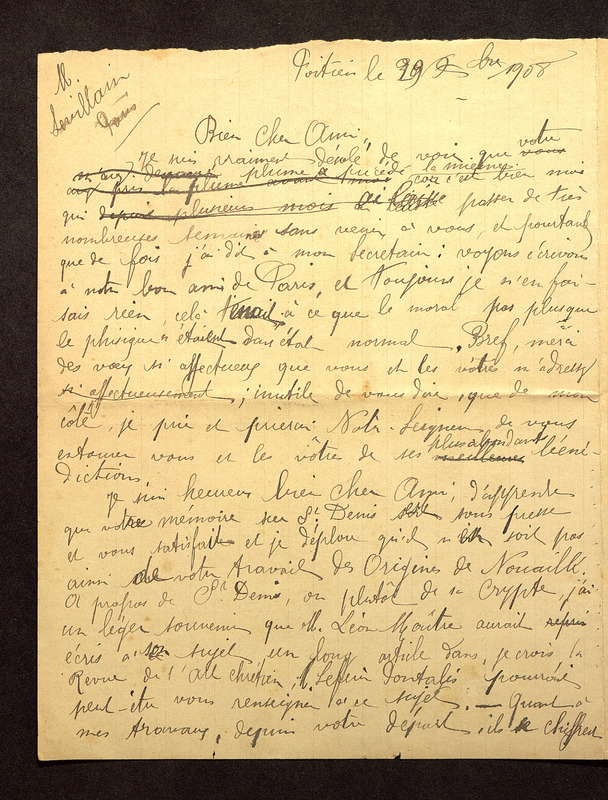 M.
Levillain
Paris
Poitiers le 29 Xbre 1908
Bien cher Ami,
Je suis vraiment désolé de voir que votre
m'aiy devancé plume a précédé la mienne
ait pris la plume avant moi car c'est bien moi
qui depuis plusieurs mois ai laissé passer de très
nombreuses semaines sans venir à vous, et pourtant
que de fois j'ai dit à mon secrétaire : voyons écrivons
à notre bon ami de Paris, et toujours je n'en fai-
sais rien, cela tenait à ce que le moral pas plus que
le phisique n'étaient dans état normal. Bref, merci
des vœux si affectueux que vous et les vôtres m'adressez
si affectueusement ; inutile de vous dire, que de mon
côté, je prie et prierai Notre-Seigneur de vous
entourer vous et les vôtres de ses plus abondantes
meilleures béné-
dictions.
Je suis heureux bien cher Ami, d'apprendre
que votre mémoire sur St Denis soit sous presse
et vous satisfaite et je déplore qu'il n'en soit pas
ainsi de votre travail des Origines de Nouaillé.
A propos de St Denis, ou plutôt de sa Crypte, j'ai
un léger souvenir que M. Léon Maître aurait
écris à son sujet un long article dans, je crois la
Revue de l'Art chrétien,
peut-être vous renseigner à ce sujet. — Quant à
mes travaux, depuis votre départ ils se chiffrent